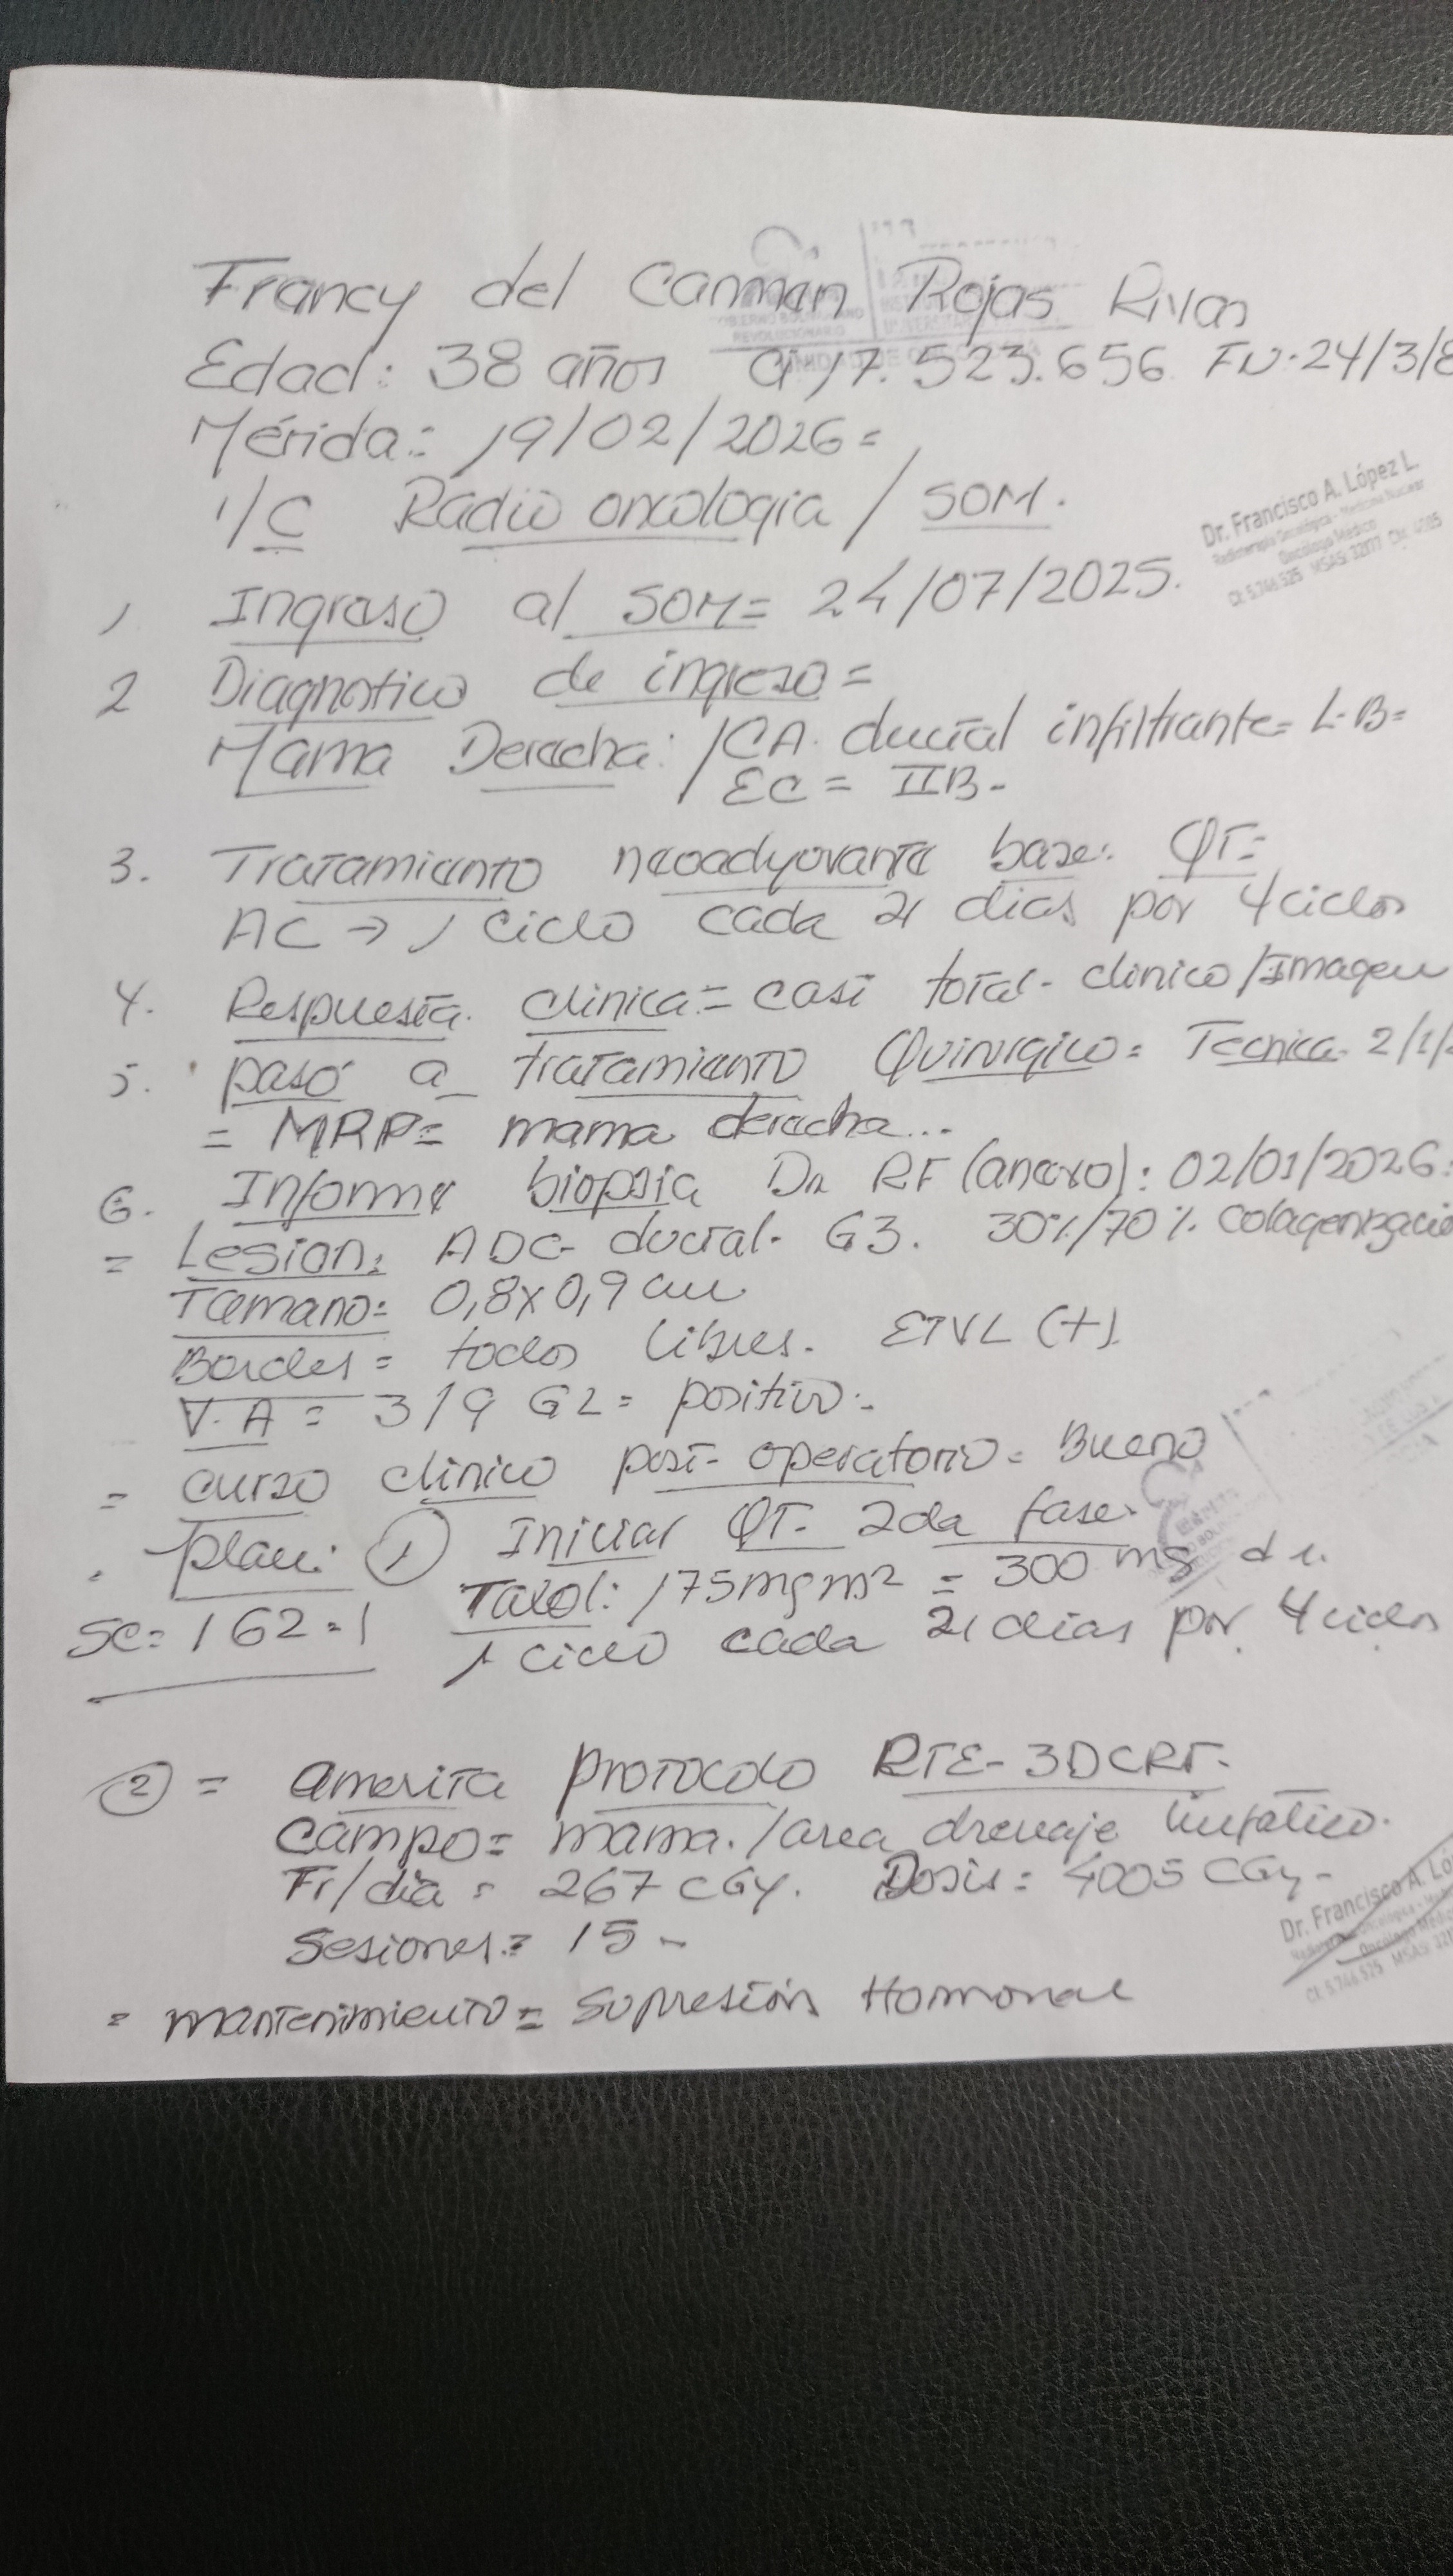 Francy del Carmen Rojas Rivas
Edad: 38 años CI 17.523.656 FN: 24/3/8
Mérida: 19/02/2026=
I/C Radio oncologia / SOM.
Dr. Francisco A. López L.
Radioterapia Oncológica - Medicina Nuclear
Oncólogo Médico
CI: 5.746.525 MSAS: 32177 CM: 4085
1 Ingreso al SOM= 24/07/2025.
2 Diagnostico de ingreso=
Mama Derecha: / CA. ductal infiltrante= L-B=
EC= IIB-
3. Tratamiento neoadyuvante base: QT=
AC → 1 ciclo cada 21 dias por 4 ciclos
4. Respuesta clinica= casi total- clinico/Imagen
5. paso a tratamiento Quirurgico= Tecnica 2/1/
= MRP= mama derecha...
6. Informe biopsia Dr RF (anexo): 02/01/2026:
= Lesion: ADC- ductal- G3. 30%/70% Colagenizacio
Tamano= 0,8x0,9 cm
Bordes= todos libres. ETVL (+)
V.A= 3/9 G2= positivo:
= curso clinico post-operatorio= Bueno
plan: ① Iniciar QT- 2da fase-
Taxol: 175mgm² = 300 mg d1.
SC= 162=1
1 ciclo cada 21 dias por 4 ciclos
② = amerita protocolo RTE-3DCRT-
Campo= mama./area drenaje linfatico.
Fr/dia= 267 cGy. Dosis= 4005 CGy-
Sesiones= 15-
Dr. Francisco A. Ló
CI: 5.746.525 MSAS: 321
= mantenimiento= Supresión Hormonal